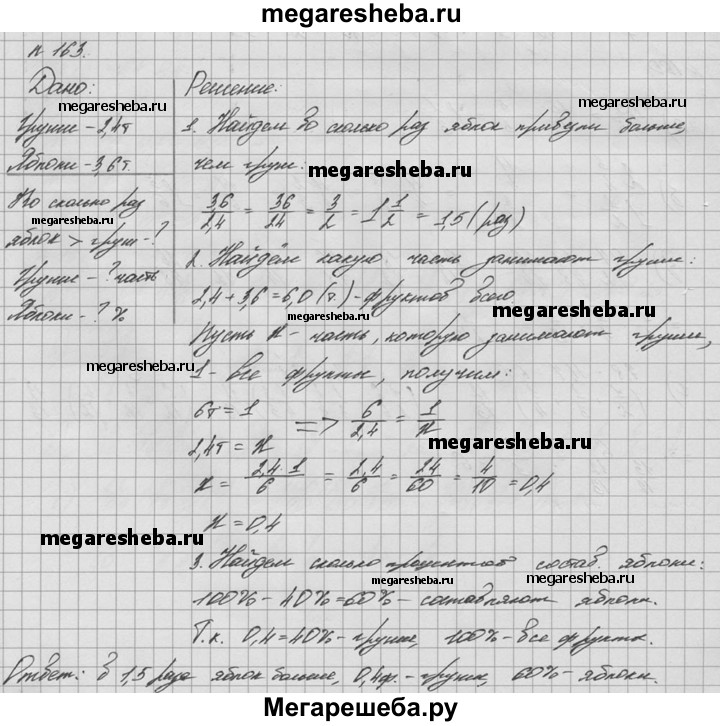 megaresheba.ru
№ 163.
Дано:
Решение:
megaresheba.ru
megaresheba.ru
Груши – 2,4т
Яблоки – 3,6т.
1. Найдем во сколько раз яблок привезли больше,
чем груш:
megaresheba.ru
Во сколько раз
megaresheba.ru
яблок > груш - ?
Груши - ? часть
Яблоки - ? %
3,6/2,4 = 36/24 = 3/2 = 1 1/2 = 1,5 (раз)
megaresheba.ru
2. Найдём какую часть занимают груши:
2,4 + 3,6 = 6,0 (т.) – фруктов всего.
megaresheba.ru
megaresheba.ru
Пусть x – часть, которую занимают груши,
megaresheba.ru
1 – все фрукты, получим:
6т = 1
2,4т = x
=> 6/2,4 = 1/x
megaresheba.ru
x = 2,4·1/6 = 2,4/6 = 24/60 = 4/10 = 0,4
x = 0,4
megaresheba.ru
3. Найдем сколько процентов состав. яблоки:
megaresheba.ru
megaresheba.ru
100% – 40% = 60% – составляют яблоки.
Т.к. 0,4 = 40% – груши, 100% – все фрукты.
Ответ: в 1,5 раза яблок больше, 0,4 – груши, 60% – яблоки.
Мегарешеба.ру